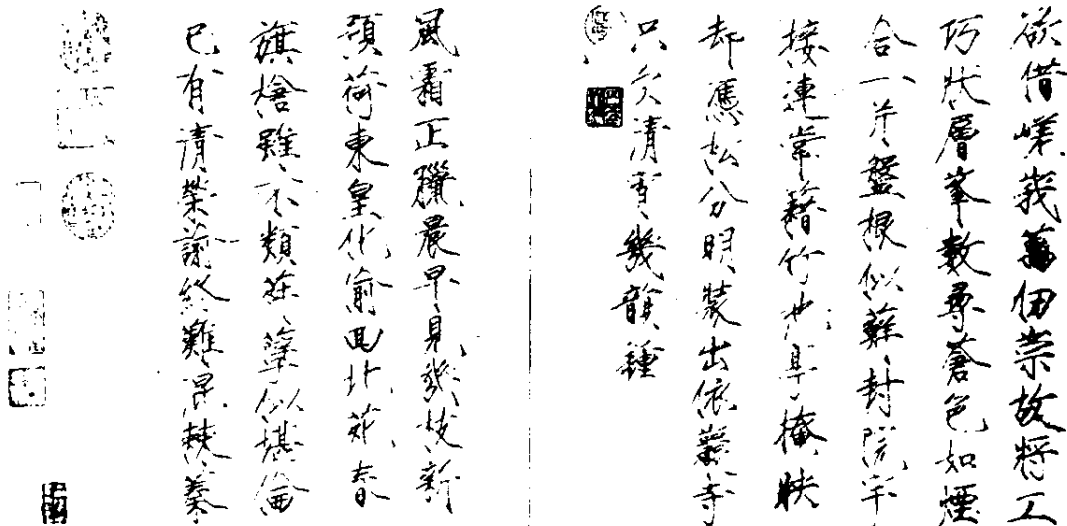 欲借嵯峨萬仞崇故將工
巧狀層峯數尋蒼色如煙
合一片盤根似蘚封院宇
接連常籍竹池亭掩映
却憑松分明裝出依巖寺
只欠清霄幾韻鍾
風霜正臘晨早見幾枝新
預荷東皇化偷回北苑春
旗槍雖不類似堪倫
已有清榮諭終難混棘蓁